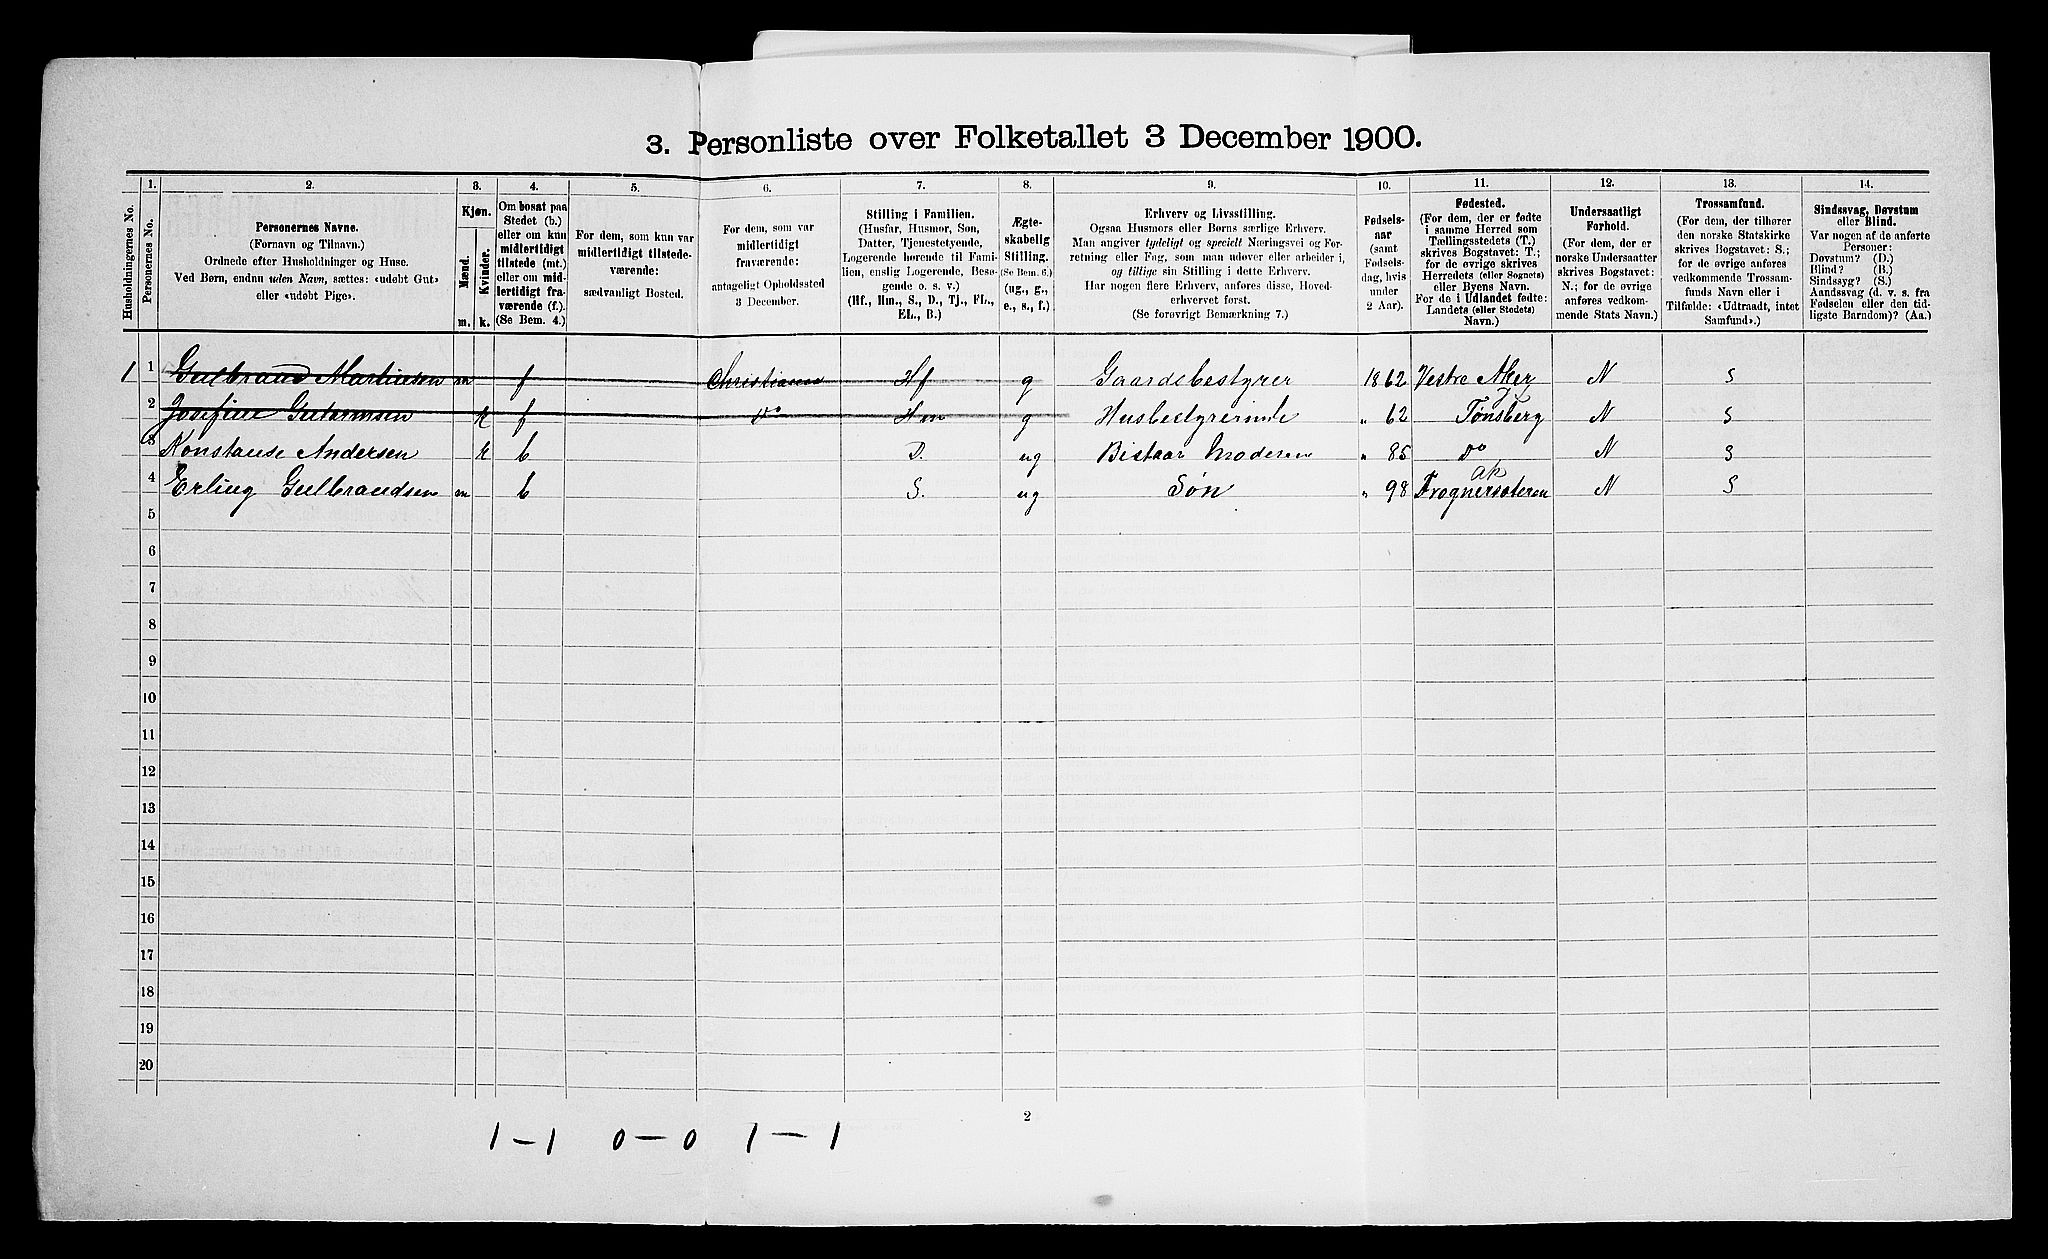 3. Personliste over Folketallet 3 December 1900.
Husholdningernes No.
1.
Personernes No.
2.
Personernes Navne.
(Fornavn og Tilnavn.)
Ordnede efter Husholdninger og Huse.
Ved Børn, endnu uden Navn, sættes: «udøbt Gut»
eller «udøbt Pige».
3.
Kjøn.
Mænd.
Kvinder.
m.
k.
4.
Om bosat paa
Stedet (b.)
eller om kun
midlertidigt
tilstede (mt.)
eller om mid-
lertidigt fra-
værende (f.).
(Se Bem. 4.)
5.
For dem, som kun var
midlertidigt tilstede-
værende:
sædvanligt Bosted.
6.
For dem, som var
midlertidigt
fraværende:
antageligt Opholdssted
3 December.
7.
Stilling i Familien.
(Husfar, Husmor, Søn,
Datter, Tjenestetyende,
Logerende hørende til Fami-
lien, enslig Logerende, Besø-
gende o. s. v.)
(Hf., Hm., S., D., Tj., FL.,
EL., B.)
8.
Ægte-
skabelig
Stilling.
(Se Bem. 6.)
(ug., g.,
e., s., f.)
9.
Erhverv og Livsstilling.
Ogsaa Husmors eller Børns særlige Erhverv.
Man angiver tydeligt og specielt Næringsvei og For-
retning eller Fag, som man udøver eller arbeider i,
og tillige sin Stilling i dette Erhverv.
Har nogen flere Erhverv, anføres disse, Hoved-
erhvervet først.
(Se forøvrigt Bemærkning 7.)
10.
Fødsels-
aar
(samt
Fødsels-
dag, hvis
under
2 Aar).
11.
Fødested.
(For dem, der er fødte
i samme Herred som
Tællingsstedets (T.)
skrives Bogstavet: T.;
for de øvrige skrives
Herredets (eller Sognets)
eller Byens Navn.
For de i Udlandet fødte:
Landets (eller Stedets)
Navn.)
12.
Undersaatligt
Forhold.
(For dem, der er
norske Undersaatter
skrives Bogstavet:
N.; for de øvrige
anføres vedkom-
mende Stats Navn.)
13.
Trossamfund.
(For dem, der tilhører
den norske Statskirke
skrives Bogstavet: S.;
for de øvrige anføres
vedkommende Trossam-
funds Navn eller i
Tilfælde: «Udtraadt, intet
Samfund».)
14.
Sindssvag, Døvstum
eller Blind.
Var nogen af de anførte
Personer:
Døvstum? (D.)
Blind? (B.)
Sindssyg? (S.)
Aandssvag (d. v. s. fra
Fødselen eller den tid-
ligste Barndom)? (Aa.)
1 1 Gulbrand Martinsen m f Christiania Hf g Gaardsbestyrer 1862 Vestre Aker N S
2 Josefine Gutormsen k f Do Hm g Husbestyrerinde " 62 Tønsberg N S
3 Konstanse Andersen k b D. ug Bistaar Moderen " 85 Do N S
4 Erling Gulbrandsen m b S. ug Søn " 98 Ak Frognersæteren N S
5
6
7
8
9
10
11
12
13
14
15
16
17
18
19
20
2
1 – 1 0 – 0 1 – 1